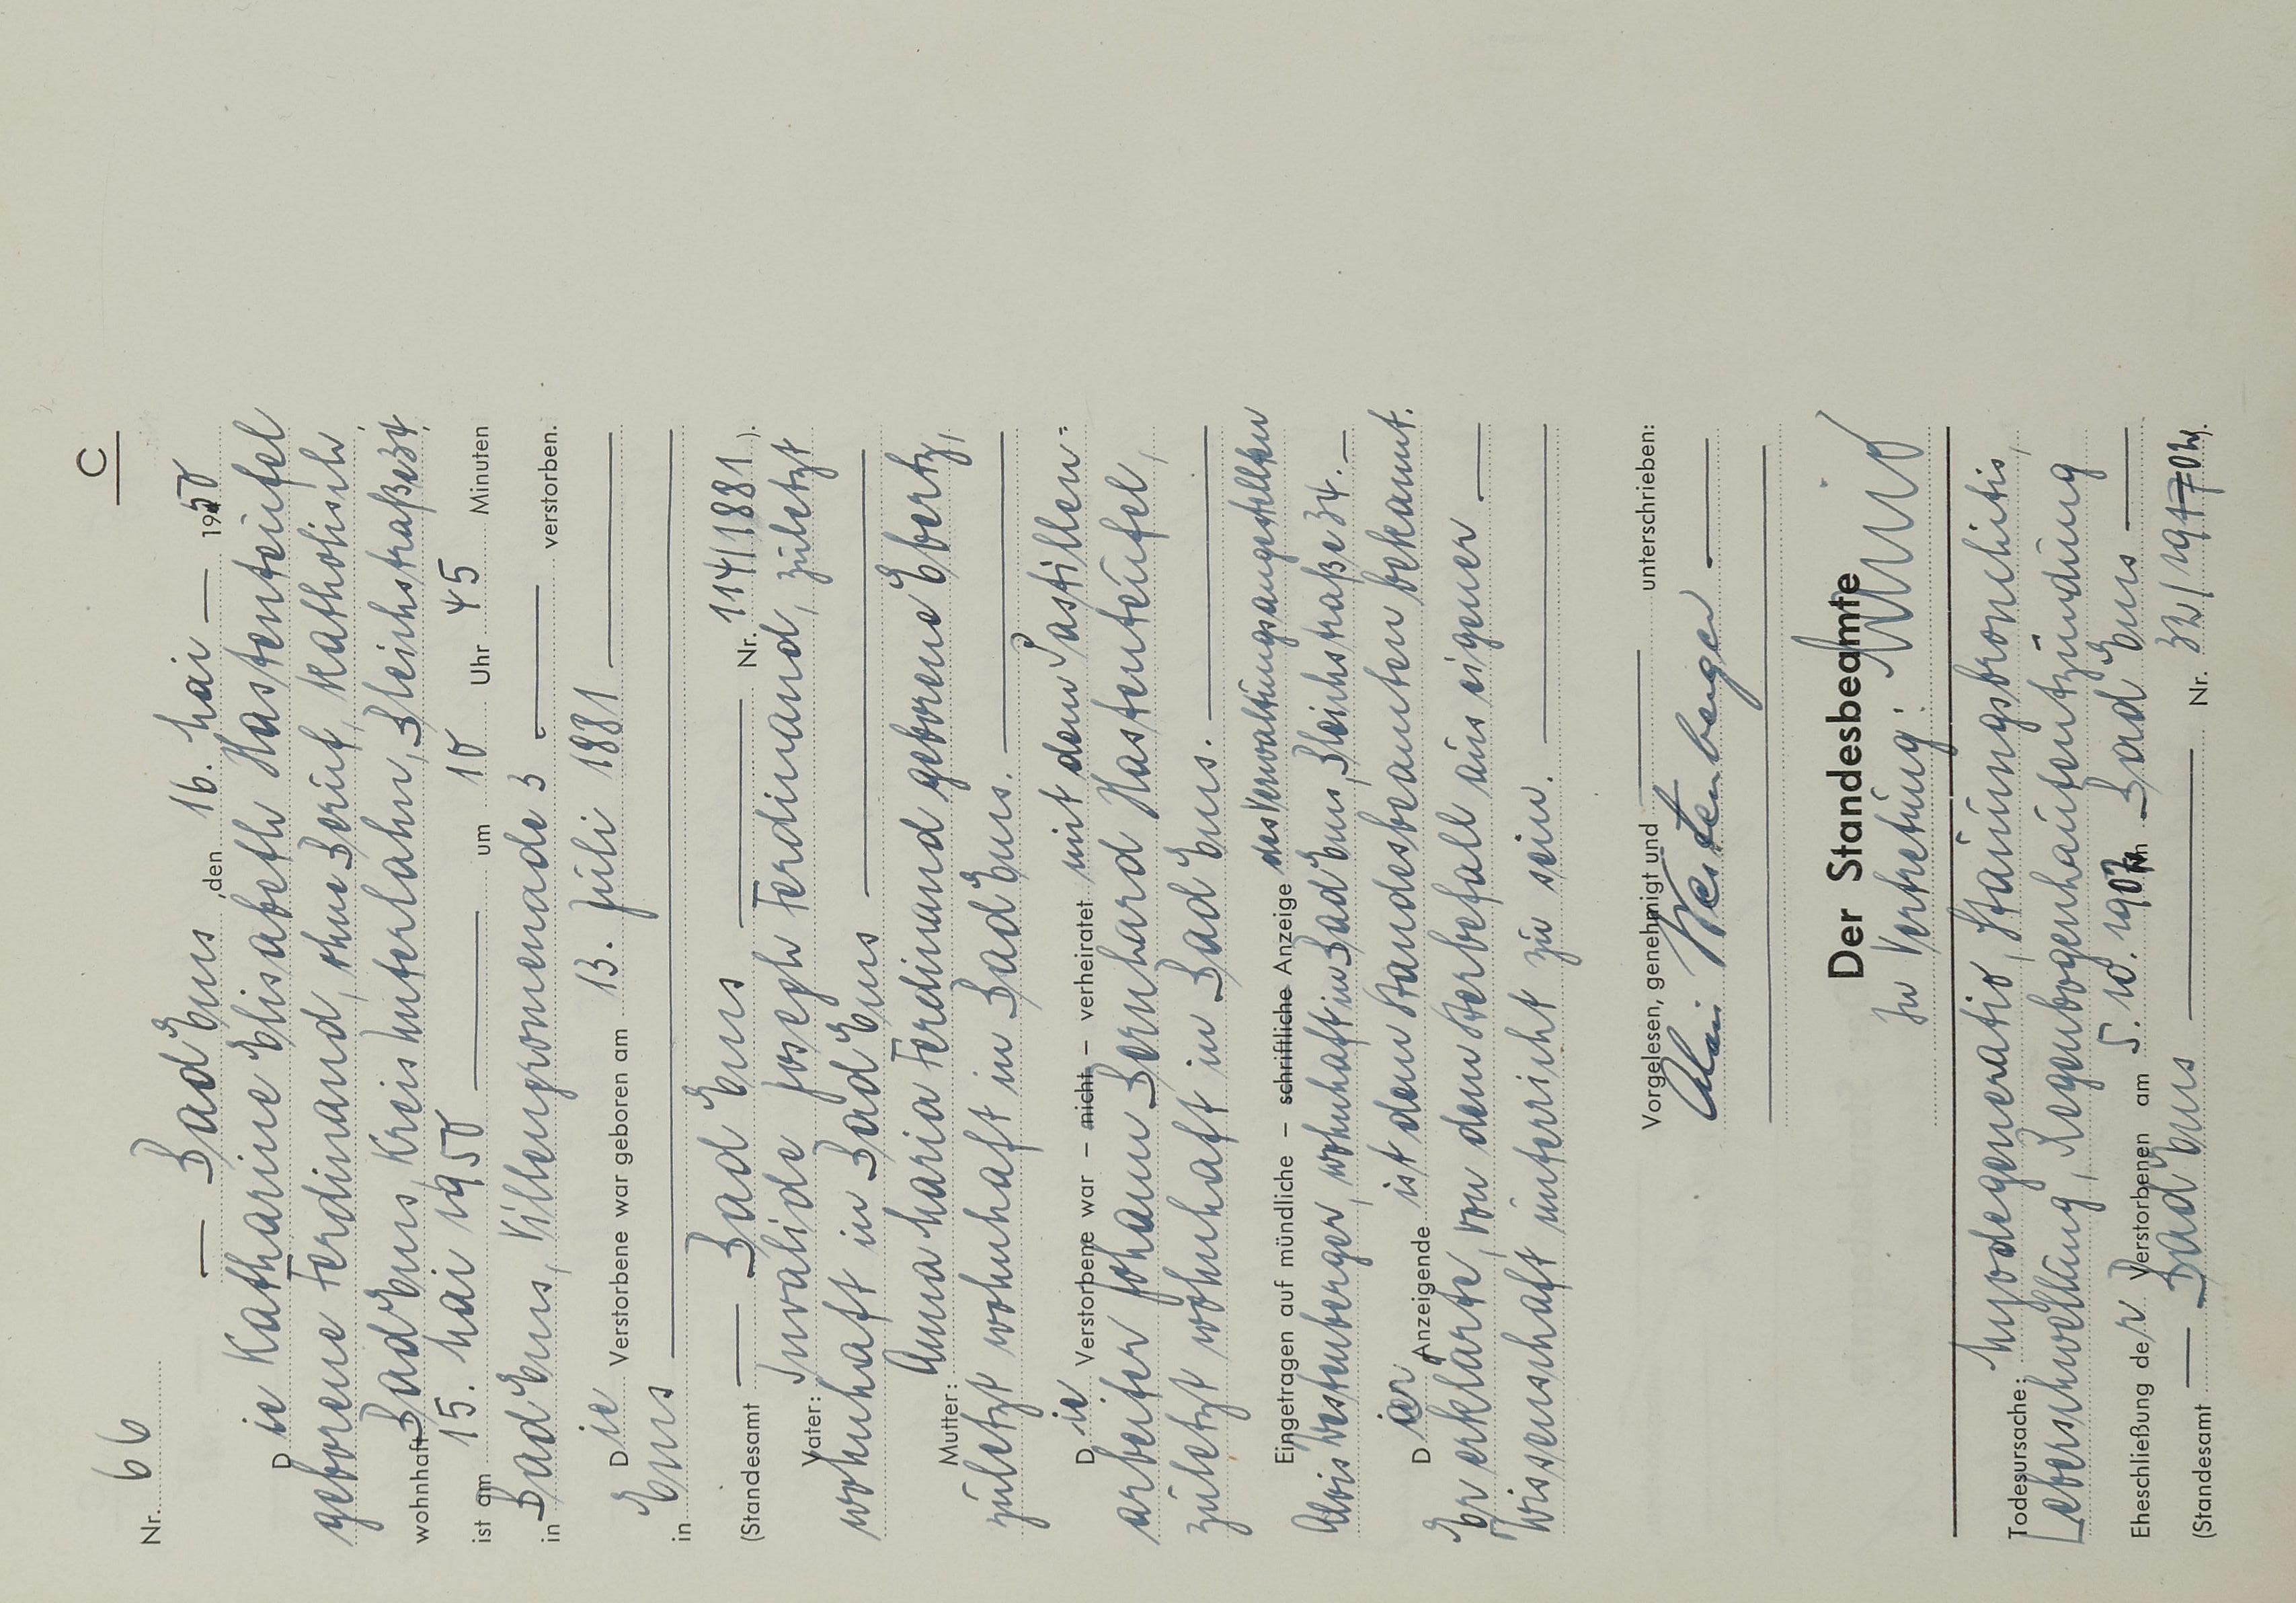 C
Nr. 66
— Bad Ems, den 16. Mai — 1950
Die Katharine Elisabeth Hastenteufel
geborene Ferdinand, ohne Beruf, katholisch,
wohnhaft Bad Ems, Kreis Unterlahn, Bleichstraße 34,
ist am 15. Mai 1950 — um 10 Uhr 45 Minuten
in Bad Ems, Villenpromenade 3 — verstorben.
Die Verstorbene war geboren am 13. Juli 1881 —
in Ems —
(Standesamt — Bad Ems — Nr. 114/1881).
Vater: Invalide Joseph Ferdinand, zuletzt
wohnhaft in Bad Ems —
Mutter: Anna Maria Ferdinand geborene Ebertz,
zuletzt wohnhaft in Bad Ems. —
Die Verstorbene war – nicht – verheiratet mit dem Pastillen=
arbeiter Johann Bernhard Hastenteufel,
zuletzt wohnhaft in Bad Ems. —
Eingetragen auf mündliche – schriftliche Anzeige des Verwaltungsangestellten
Alois Westenberger, wohnhaft in Bad Ems, Bleichstraße 34. —
Der Anzeigende ist dem Standesbeamten bekannt.
Er erklärte, von dem Sterbefall aus eigener —
Wissenschaft unterricht zu sein. —
Vorgelesen, genehmigt und — unterschrieben:
Alois Westenberger —
Der Standesbeamte
In Vertretung:
Todesursache: Myodegeneratio, Stauungsbronchitis,
Leberschwellung, Regenbogenhautentzündung
Eheschließung der Verstorbenen am 5. 10. 1907 in Bad Ems —
(Standesamt — Bad Ems — Nr. 32/19